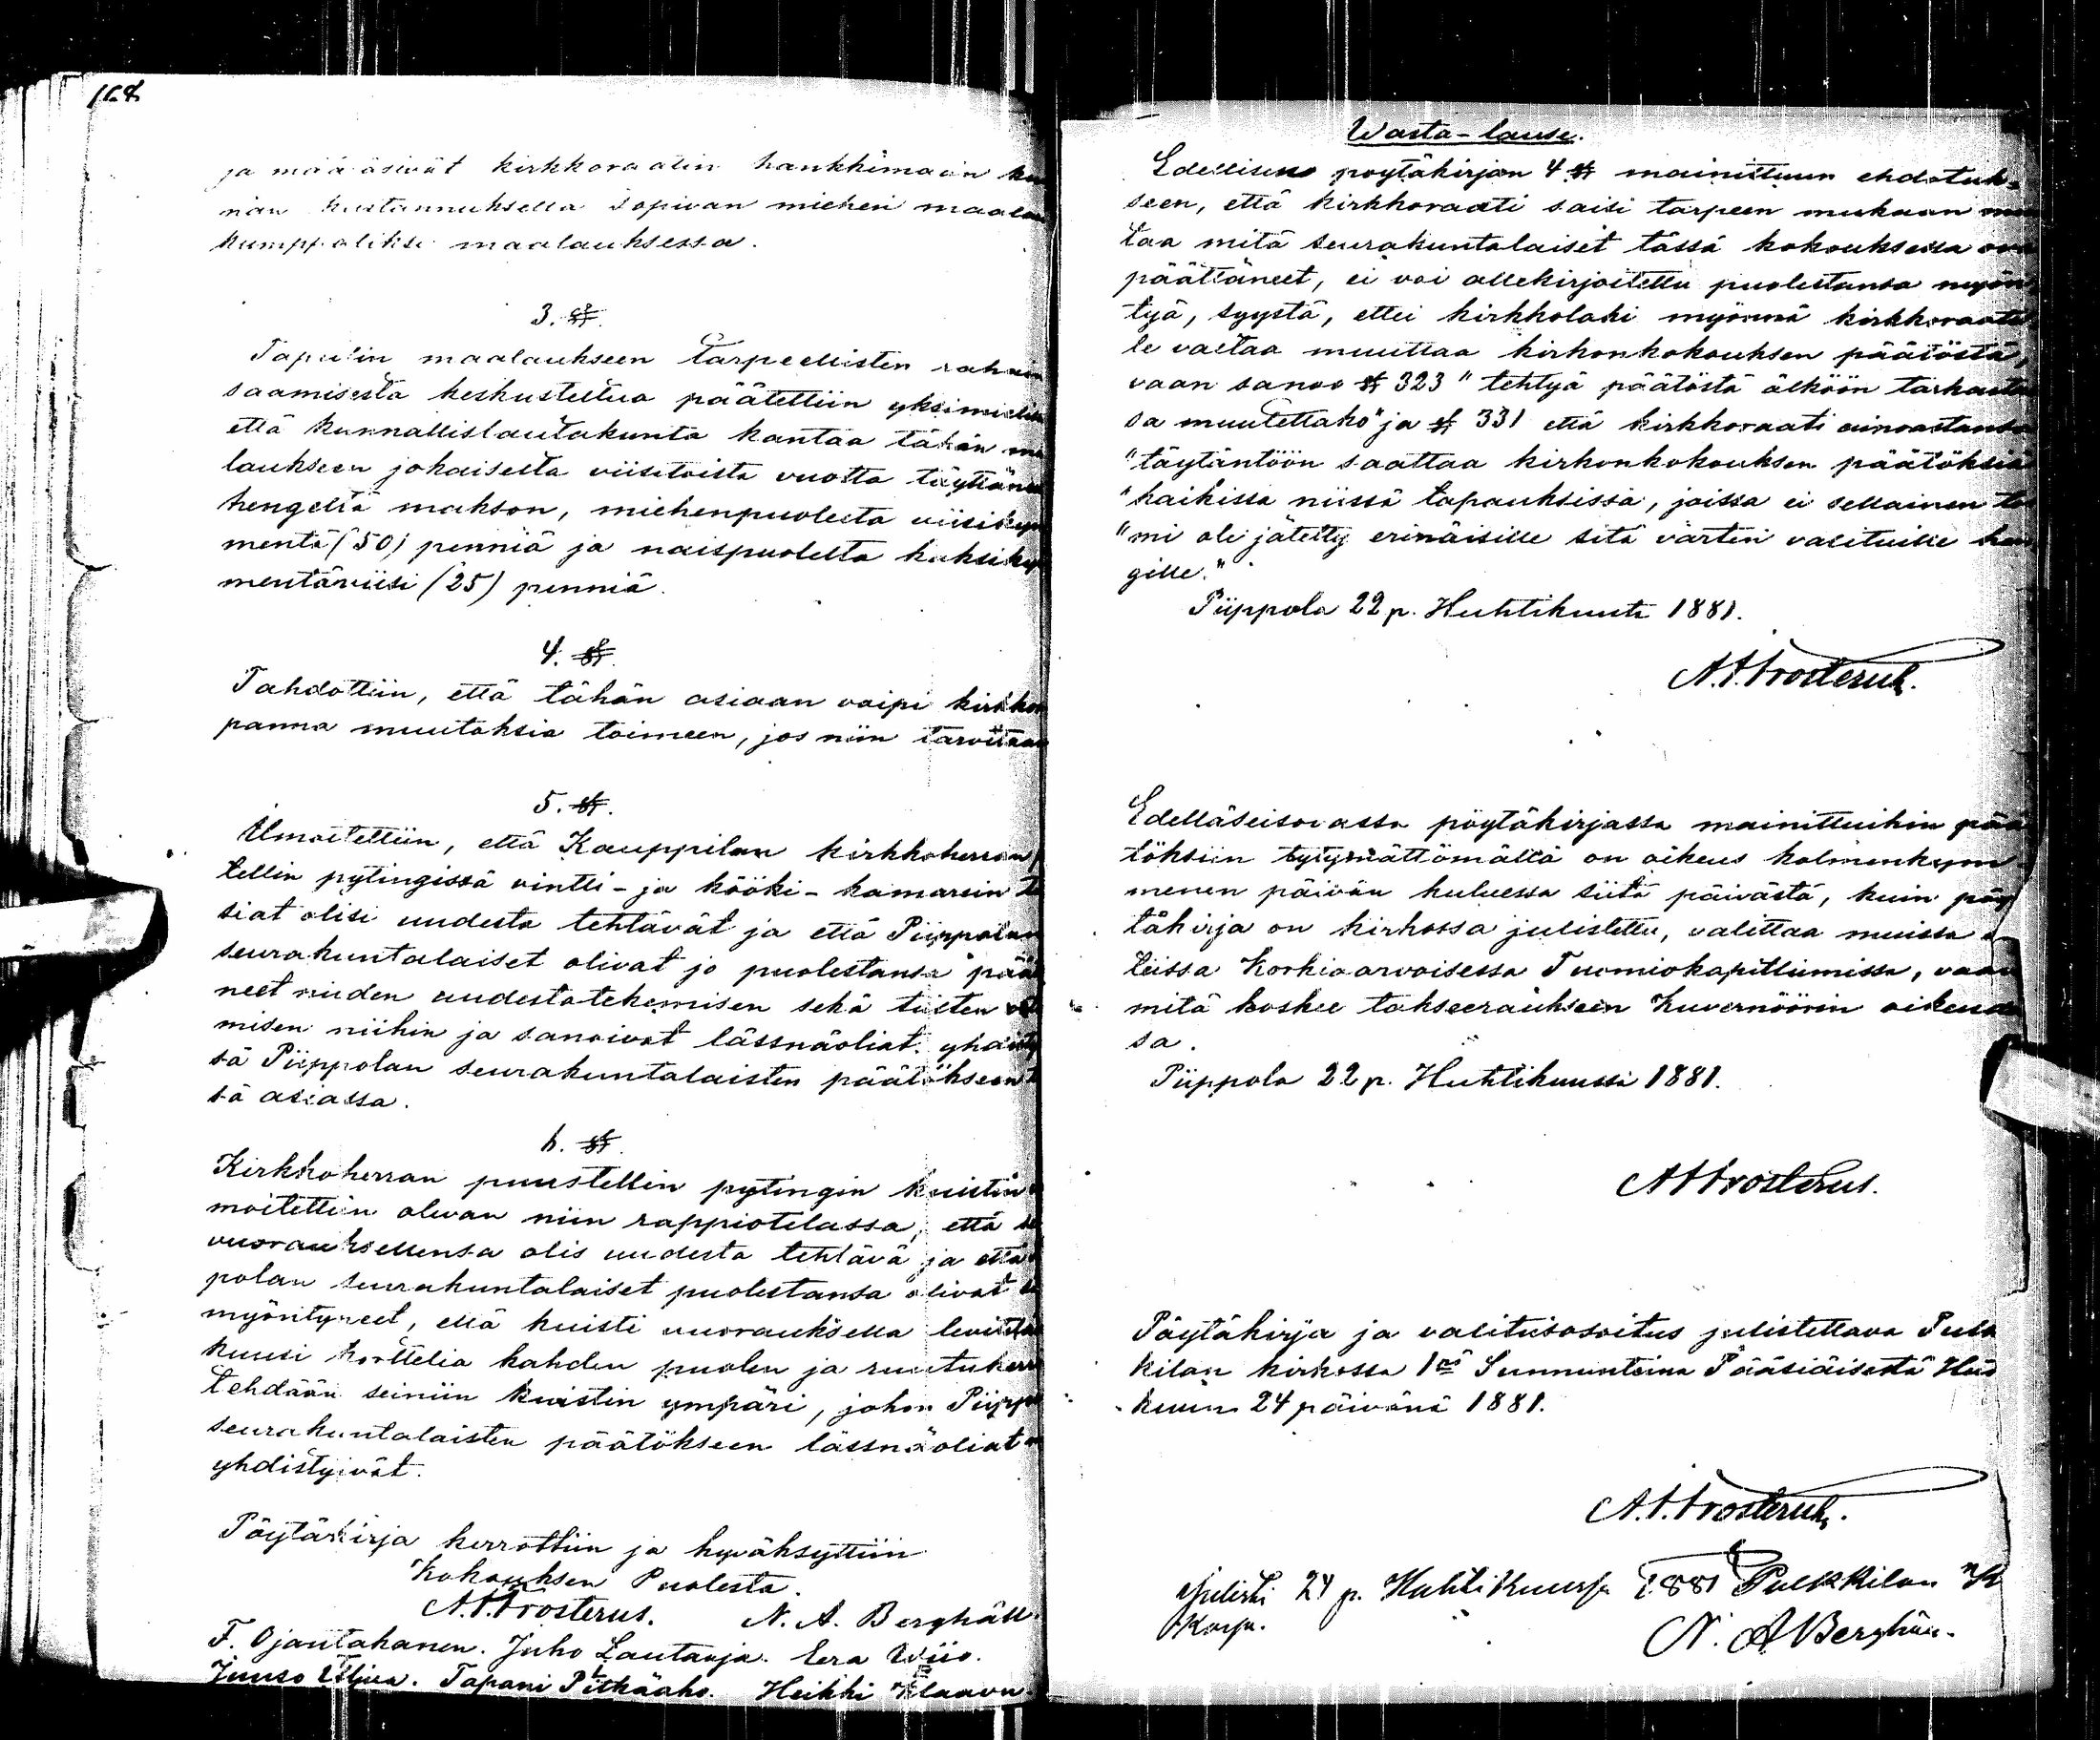 168
ja määräsivät kirkkoraatin hankkimaan
nan kustannuksella sopivan miehen
kumppaliksi maalauksessa.
3. §.
Tapulin maalaukseen tarpeellisten
saamisesta keskusteltua päätettiin
että kunnallislautakunta kantaa tähän
laukseen jokaiselta viisitoista vuotta
hengeltä makson, miehenpuolesta
mentä (50) penniä ja naispuolelta
mentäviisi (25) penniä.
4. §.
Tahdottiin, että tähän asiaan vaipi
panna muutoksia toimeen, jos niin
5. §.
Ilmoitettiin, että Kauppilan kirkkoherran
tellin pytingissä vintti- ja kööki- kamarsin
siat olisi uudesta tehtävät ja että Piippolan
seurakuntalaiset olivat jo puolestansa
neet niiden uudestatekemisen sekä
misen niihin ja sanoivat lässnäoliat
sä Piippolan seurakuntalaisten päätökseen
sä asiassa.
6. §.
Kirkkoherran puustellin pytingin kuistin
moitettiin olevan niin rappiotilassa, että
vuorauksellensa olis uudesta tehtävä ja että
polan seurakuntalaiset puolestansa olivat
myöntyneet, että kuisti vuorauksella
kuusi korttelia kahden puolen ja
tehdään seiniin kuistin ympäri, johon
seurakuntalaisten päätökseen lässnäoliat
yhdistyivät.
Pöytäkirja kerrottiin ja hyväksyttiin
Kokouksen Puolesta.
A. F. Frosterus. N. A. Berghäll
F. Ojantakanen. Juho Lautanja. Wiio.
Juuso Tapani Pitkäaho. Heikki
Wasta-lause.
Edellisen pöytäkirjan 4 § mainittuun ehdotuk-
seen, että kirkkoraati saisi tarpeen mukaan
taa mitä seurakuntalaiset tässä kokouksessa
päättäneet, ei voi allekirjoitettu puolestansa
tyä, syystä, ettei kirkkolaki myönnä
le valtaa muuttaa kirkonkokouksen päätöstä,
vaan sanoo § 323 "tehtyä päätöstä älköön
sa muutettako" ja § 331 että kirkkoraati ainoastansa
"täytäntöön saattaa kirkonkokouksen päätöksiä
"kaikissa niissä tapauksissa, joissa ei sellainen
"mi ole jätetty erinäisille sitä varten valituille
gille."
Piippola 22 p. Huhtikuuta 1881.
A. F. Frosterus.
Edelläseisovassa pöytäkirjassa mainittuihin
töksiin tytymättömällä on oikeus kolmenkym-
menen päivän kuluessa siitä päivästä, kuin
täkirja on kirkossa julistettu, valittaa muissa
teissa Korkiaarvoisessa Tuomiokapitliumissa, vaan
mitä koskee takseeraukseen Kuvernöörin
sa.
Piippola 22 p. Huhtikuussa 1881.
A F Frosterus.
Pöytäkirja ja valitusosoitus julistettava
kilan kirkossa 1nä Sunnuntaina Pääsiäisestä
kuun 24 päivänä 1881.
A. F. Frosterus.
Julisti 24 p. Huhtikuussa 1881 Pulkkilan
N. A Berghäll.